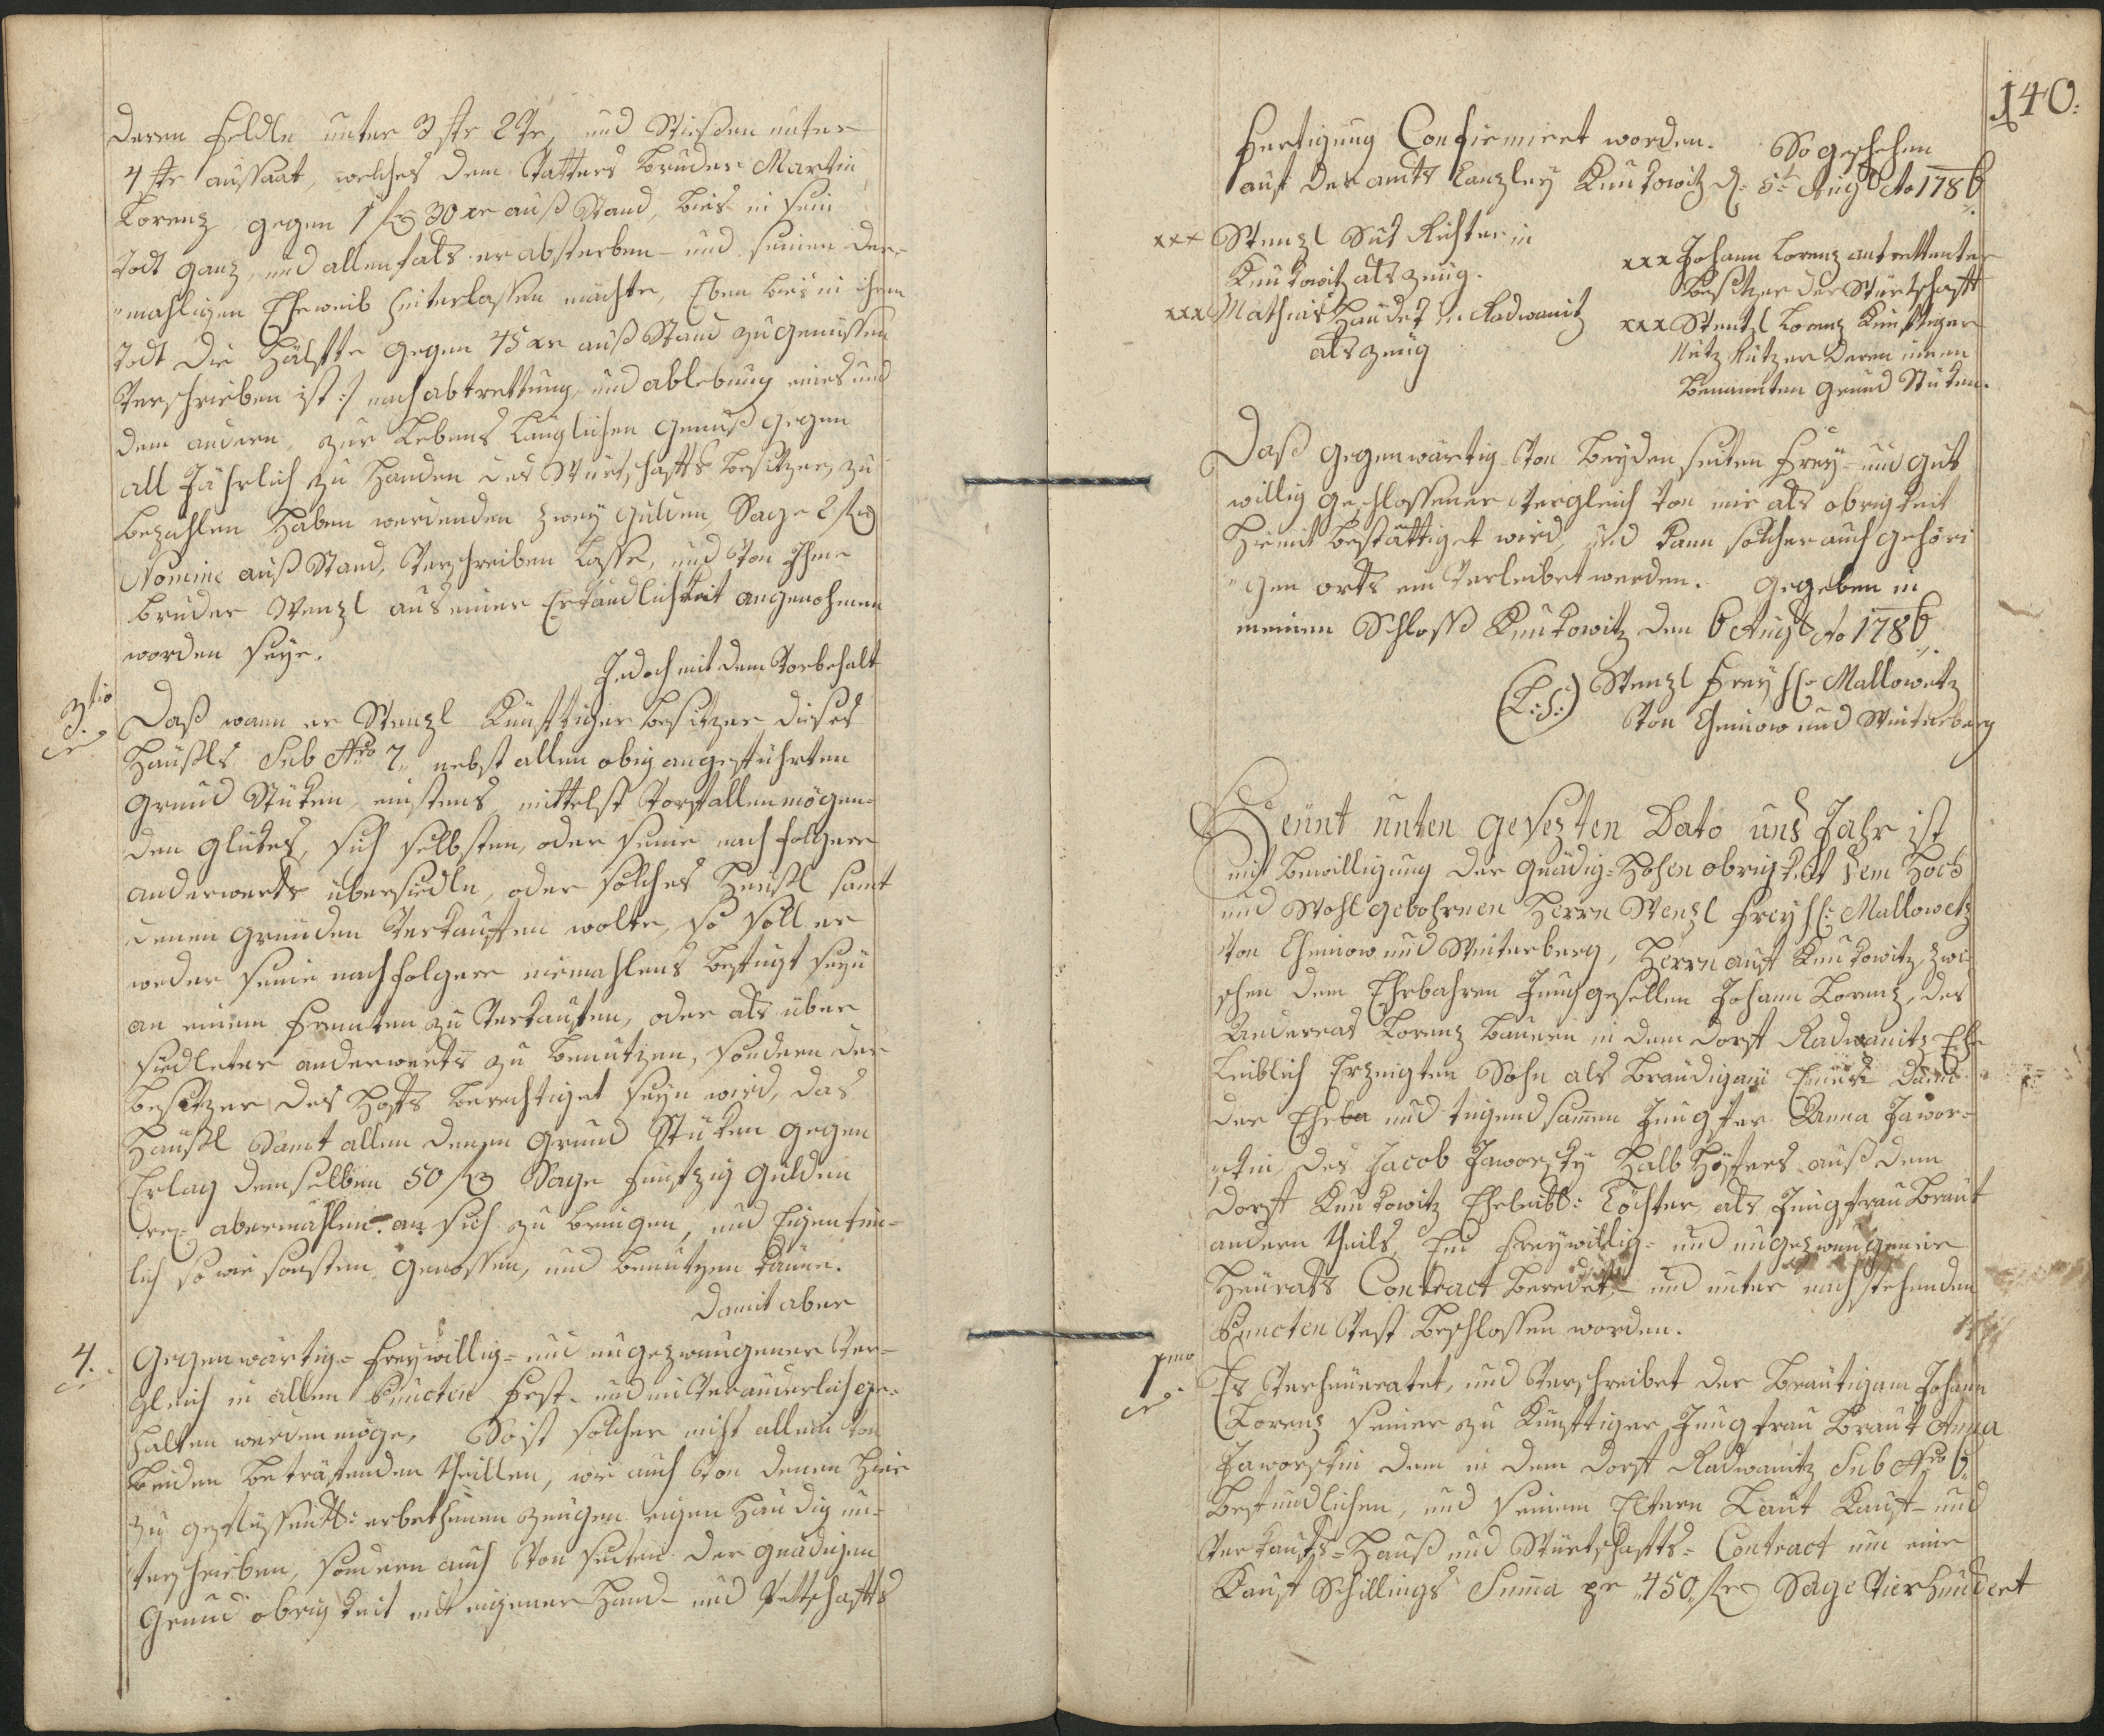 deren Feldln unter 3 str 2 Ve, und Wießen unter
4 str aussaat, welches dem Vatters bruder Martin
Lorenz gegen 1 fl 30 xr auß Stand, bies in sein
Todt ganz, und allenfals er absterben – und seinen der-
"mahligen Eheweib hinterlassen möchte, Eben bies in ihren
Todt die Hälfte gegen 45 xr auß Stand zu genüssen
Verschrieben ist :/ nach abtrettung, und ablebung eines und
dem andern, zur Lebens länglichen genuß gegen
all Jährlich zu Handen des Würtschafts besitzer, zu
bezahlen haben werdenden zwey gulden, Sage 2 fl
Nomine auß Stand, Verschreiben lasse, und von Ihme
bruder Wenzl aus einer Erkandlichkeit angenohmen
worden seye.
Jedoch mit dem Vorbehalt
3tio
Daß wann er Wenzl künfftiger besitzer dieses
Häußls Sub Nro 7. nebst allen obig angeführten
grund Stüken, einstens mittelst vorfallen mögen-
den glükes, sich selbsten, oder seine nach folgere
anderwerts übersiedln, oder solches Heüßl samt
denen gründen Verkauffen wolte, so soll er
weder seine nachfolgere niemahlens befugt seyn
an einem fremten zu Verkaufen, oder als über
siedleter anderwerts zu benutzen, sondern der
besitzer des Hofs berechtiget seyn wird, das
Häußl Samt allen denen grund Stüken gegen
Erlag demselben 50 fl Sage funfzig gulden
abermahlen an sich zu bringen, und Eigentum-
lich so wie sonsten genossen, und benutzen könne.
Damit aber
4.
gegenwärtig- freywillig- und ungezwungener Ver-
gleich in allen Puncten fest- und unveränderlich ge-
halten werden möge, So ist solcher nicht allein von
beiden beträfenden theillen, wie auch von denen hier
zu geflüssentl: erbethenen zeügen eigenhändig un-
terschrieben, sondern auch von seiten der gnädigen
grund obrigkeit mit eigener Hand- und Pettschafts
140.
fertigung Confirmiret worden. So geschehen
auf der amts Canzley Knukowitz d: 5t Augt Ao 1786.
xxx Wenzl Sut Richter in
Knukowitz als zeüg.
xxx Mathias Handel in Radwanitz
als zeüg
xxx Johann Lorenz antrettenter
besitzer der Würtschaft
xxx Wentzl Lorenz künftiger
Nutz Nutzer deren innen
benannten grund Stüken.
Daß gegenwärtig von beyden seiten frey- und gut
willig geschlossener Vergleich von mir als obrigkeit
hiemit bestättiget wird, und kann solcher auch gehöri
"gen orts ein Verleibet werden. gegeben in
meinen Schloss Knukowitz den 6 Augt Ao 1786.
(L:S:) Wenzl Freyh: Mallowetz
von Cheinow und Winterberg
Heünt unten gesezten Dato und Jahr ist
mit bewilligung der gnädig- hohen obrigkeit dem Hoch
und Wohl gebohrnen Herrn Wenzl Freyh: Mallowetz
von Cheinow und Winterberg, Herrn auf Knukowitz, zwi
schen dem Ehrbahren Junggesellen Johann Lorenz, des
Andereas Lorenz bauern in dem dorf Radwanitz Ehe
leiblich Erzeigten Sohn als bräudigam Eines: dann
der Ehrba und tugendsamen Jungfer Anna Jawor-
skin des Jacob Jaworsky Halb Höfners auß dem
dorf Knukowitz Eheleibl: Tochter als Jungfrau Braut
andern theils, Ein freywillig- und ungezwungener
Heürats Contract beredet,- und unter nachstehenden
Puncten Vest beschlossen worden.
1mo
Es Verheüratet, und Verschreibet der Bräutigam Johann
Lorenz seiner zu Künfftiger Jungfrau Braut Anna
Jaworskin dem in dem dorf Radwanitz Sub Nro 6.
befindlichen, und seinem Eltern Laut Kauf- und
Verkaufs- Hauß und Würtschafts- Contract um eine
Kauf Schillings Suma pr 450 fl Sage Vierhundert